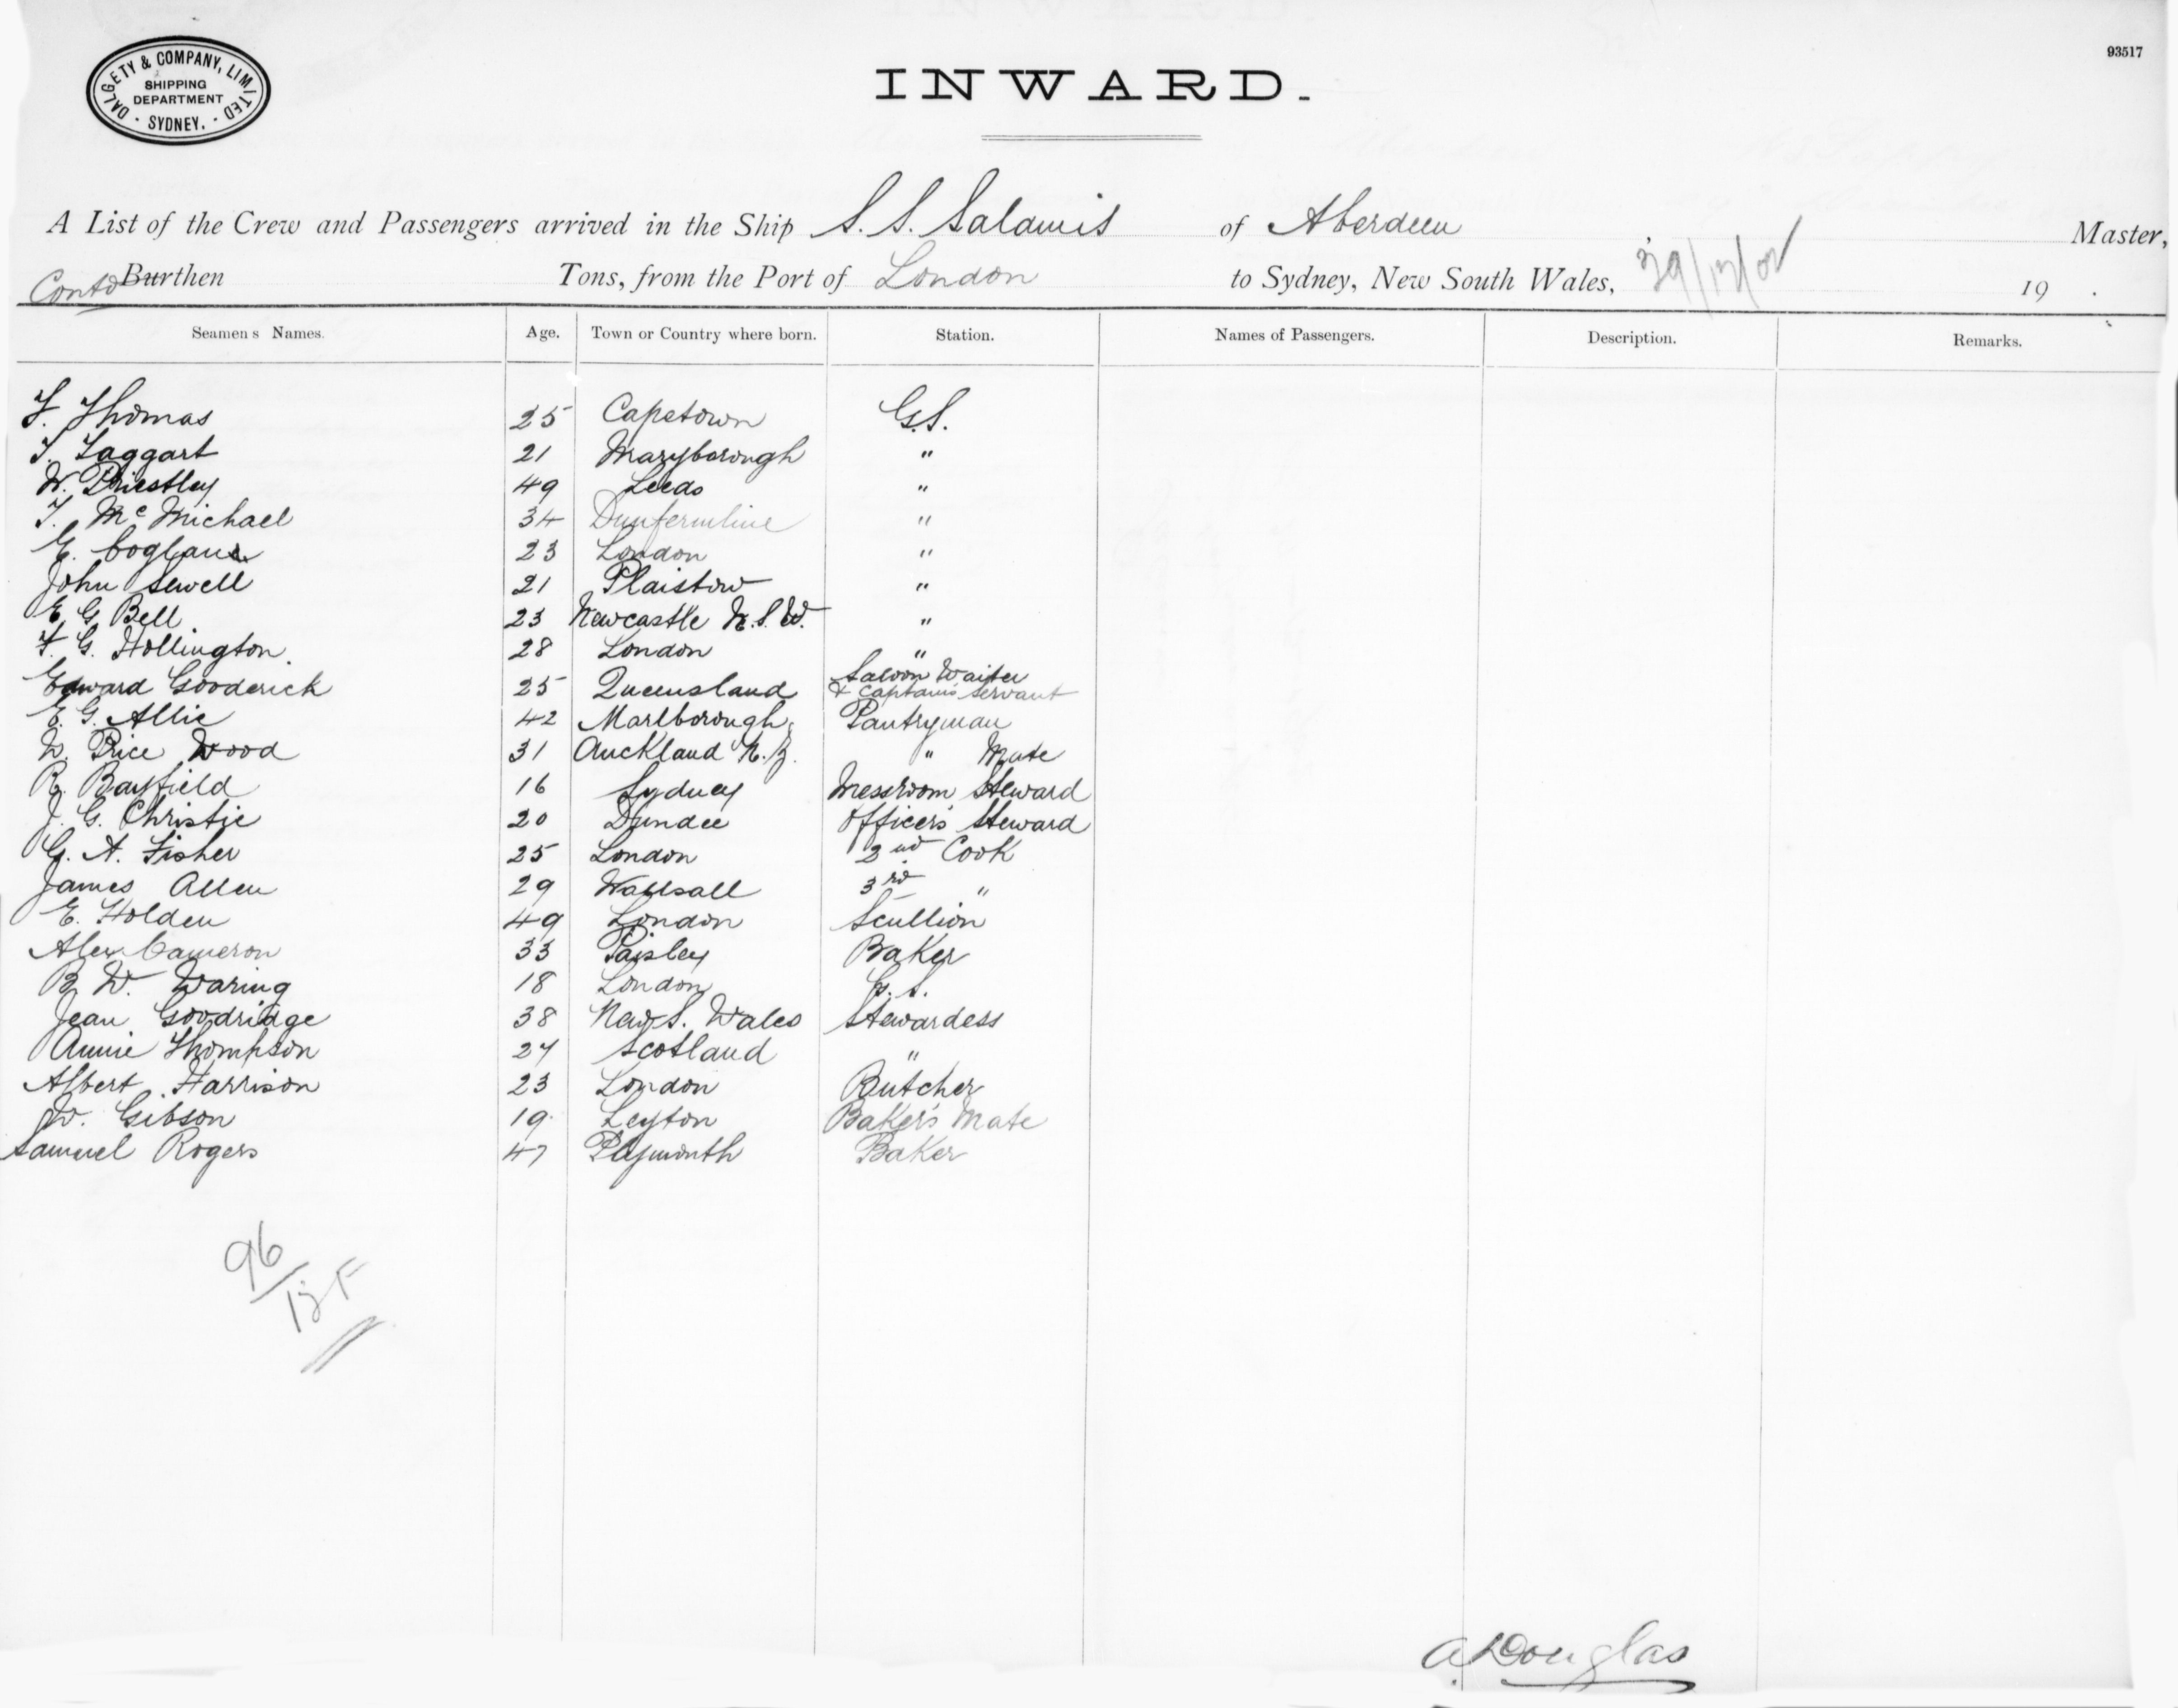 DALGETY & COMPANY, LIMITED
SHIPPING
DEPARTMENT
SYDNEY.
93517
INWARD.
A List of the Crew and Passengers arrived in the Ship S. S. Salamis of Aberdeen , Master,
Contd Burthen Tons, from the Port of London to Sydney, New South Wales, 29/12/02 19 .
Seamens Names. Age. Town or Country where born. Station. Names of Passengers. Description. Remarks.
F. Thomas 25 Capetown G.S.
T. Taggart 21 Maryborough "
W. Priestley 49 Leeds "
T. Mc Michael 34 Dunfermline "
E. Coglan 23 London "
John Sewell 21 Plaistow "
E. G. Bell 23 Newcastle N.S.W. "
F. G. Hollington. 28 London "
Edward Gooderick 25 Queensland Saloon Waiter
& Captains Servant
E. G. Allie 42 Marlborough. Pantryman
W. Price Wood 31 Auckland N.Z. " Mate
R. Bayfield 16 Sydney Messroom Steward
J. G. Christie 20 Dundee Officer's Steward
G. A. Fisher 25 London 2nd Cook
James Allen 29 Wallsall 3rd "
E. Holden 49 London Scullion
Alex Cameron 33 Paisley Baker
B. W. Waring 18 London G.S.
Jean Goodridge 38 New S. Wales Stewardess
Annie Thompson 27 Scotland "
Albert Harrison 23 London Butcher
W. Gibson 19 Leyton Baker's Mate
Samuel Rogers 47 Plymouth Baker
96
A. Douglas